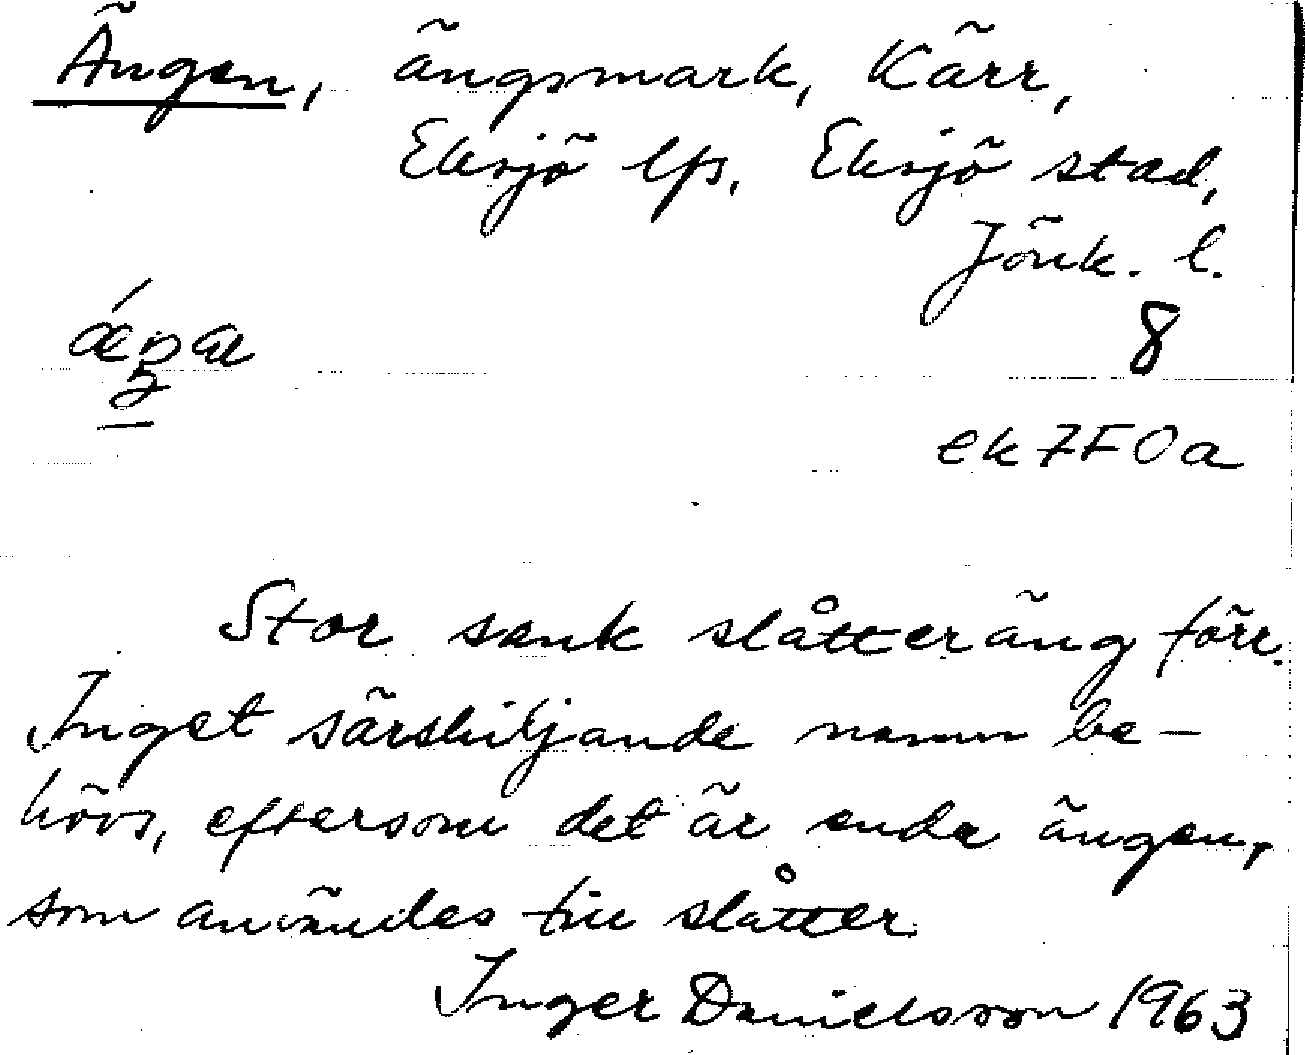 Ängen, ängsmark, Kärr,
Eksjö lfs, Eksjö stad,
Jönk. l.
8
ek 7F0a
Stor sank slåtteräng förr.
Inget särskiljande namn be-
hövs, eftersom det är enda ängen,
som användes till slåtter
Inger Danielsson 1963